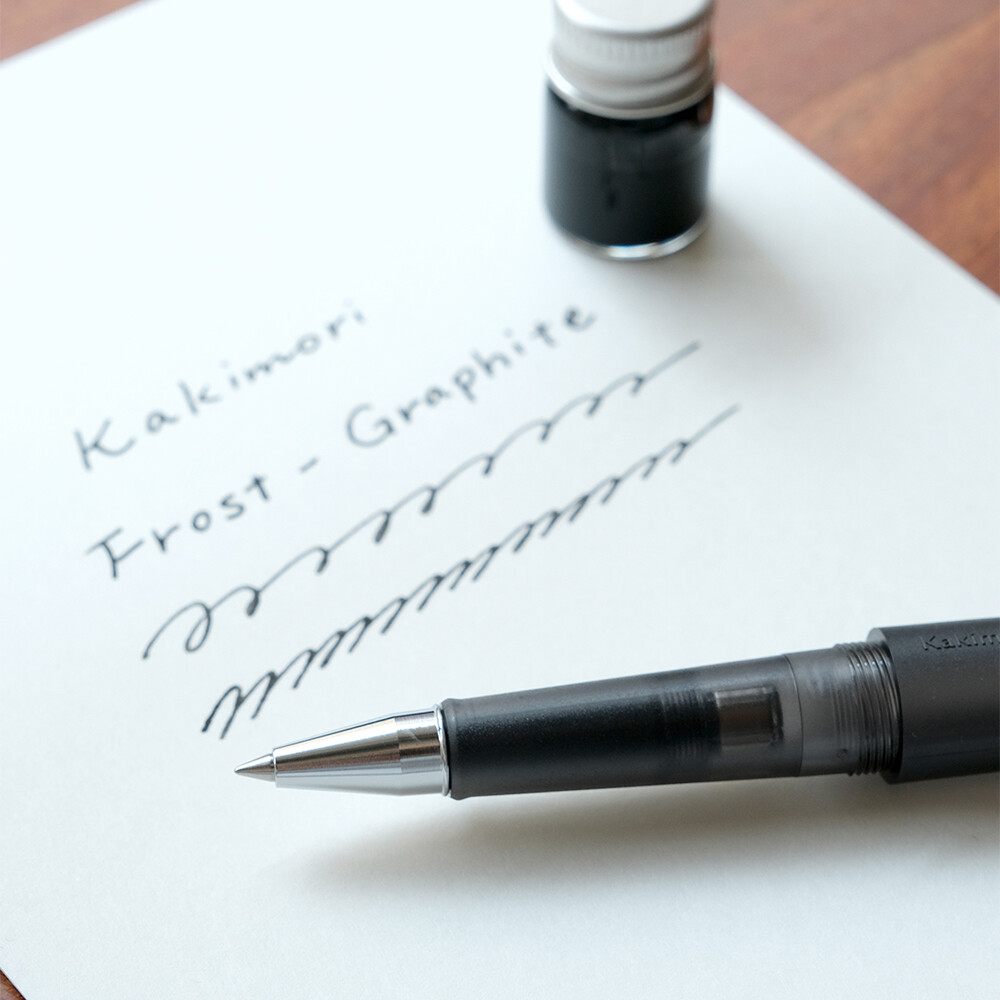 Kakimori
Frost - Graphite
Kakim